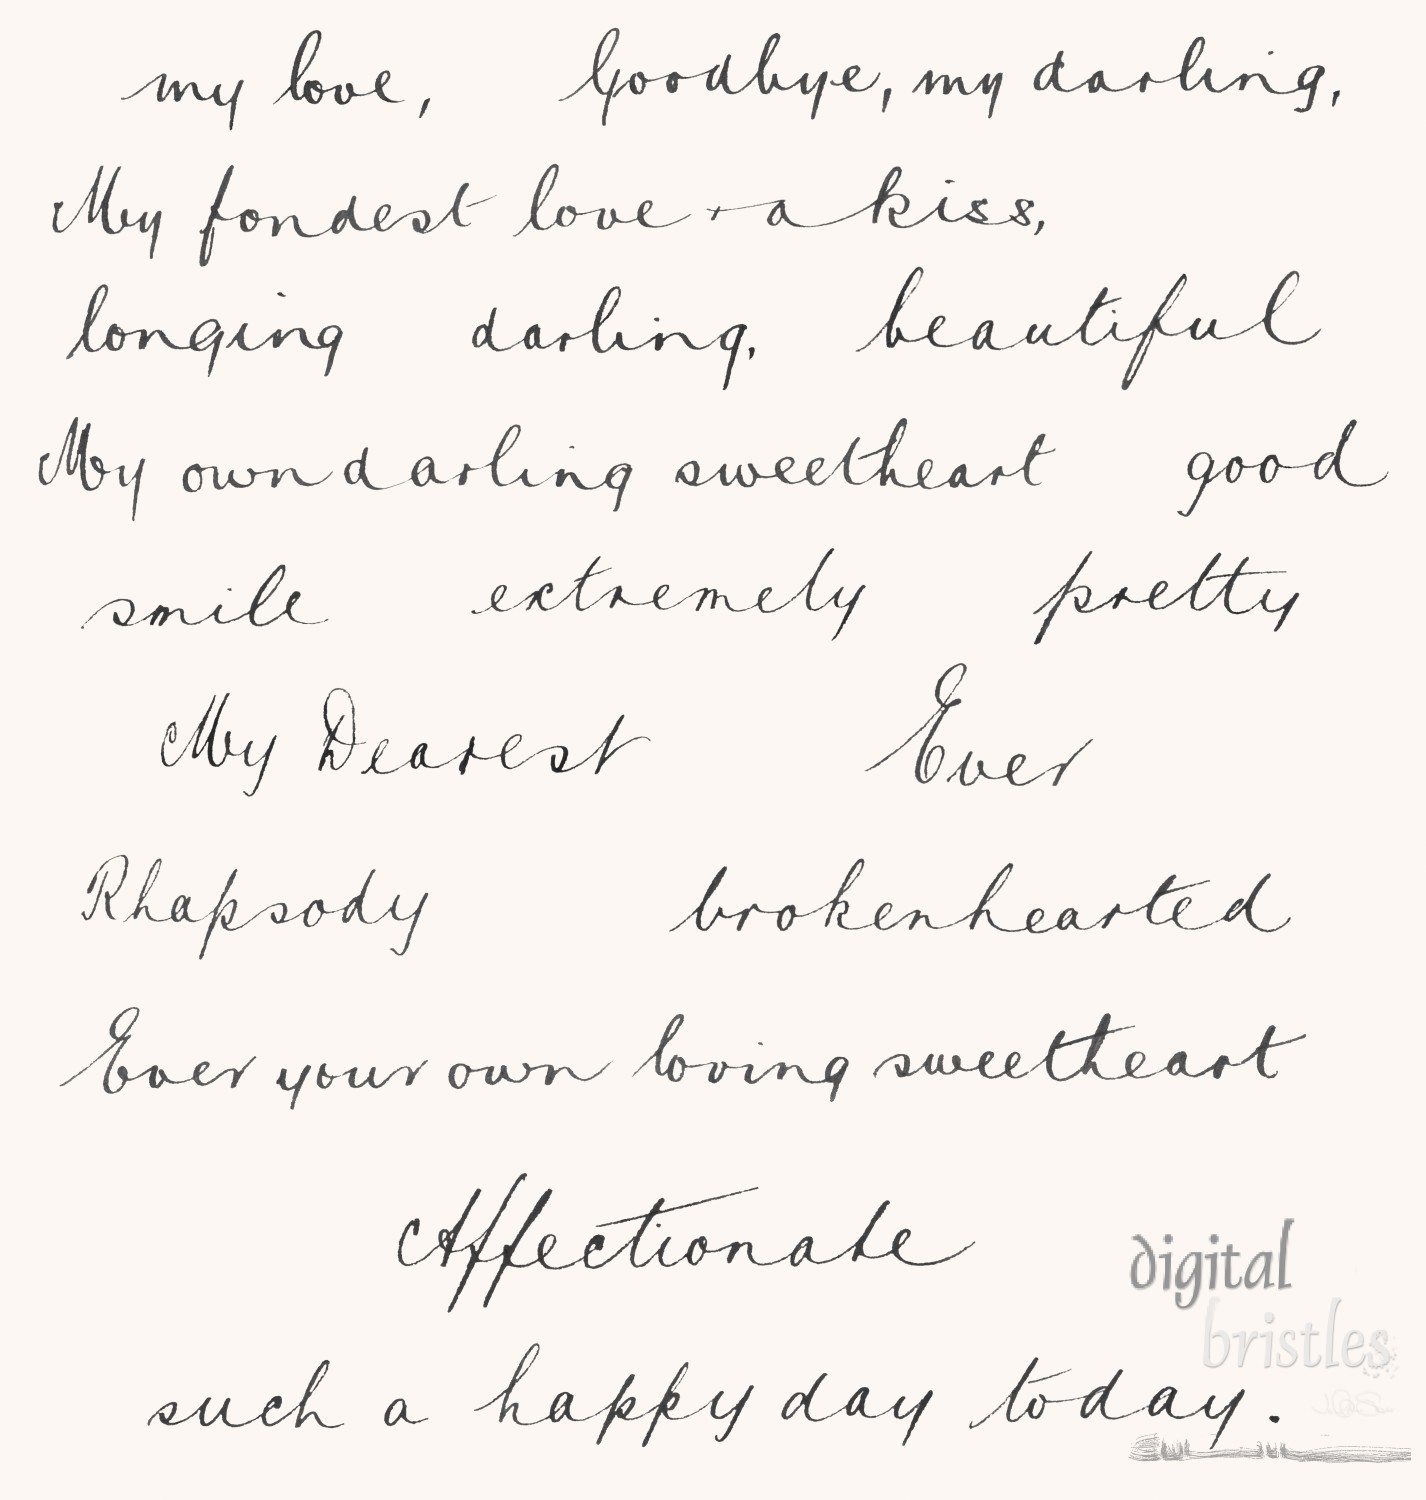 my love, Goodbye, my darling,
My fondest love + a kiss,
longing darling, beautiful
My own darling sweetheart good
smile extremely pretty
My Dearest Ever
Rhapsody brokenhearted
Ever your own loving sweetheart
Affectionate
digital
bristles
such a happy day today.